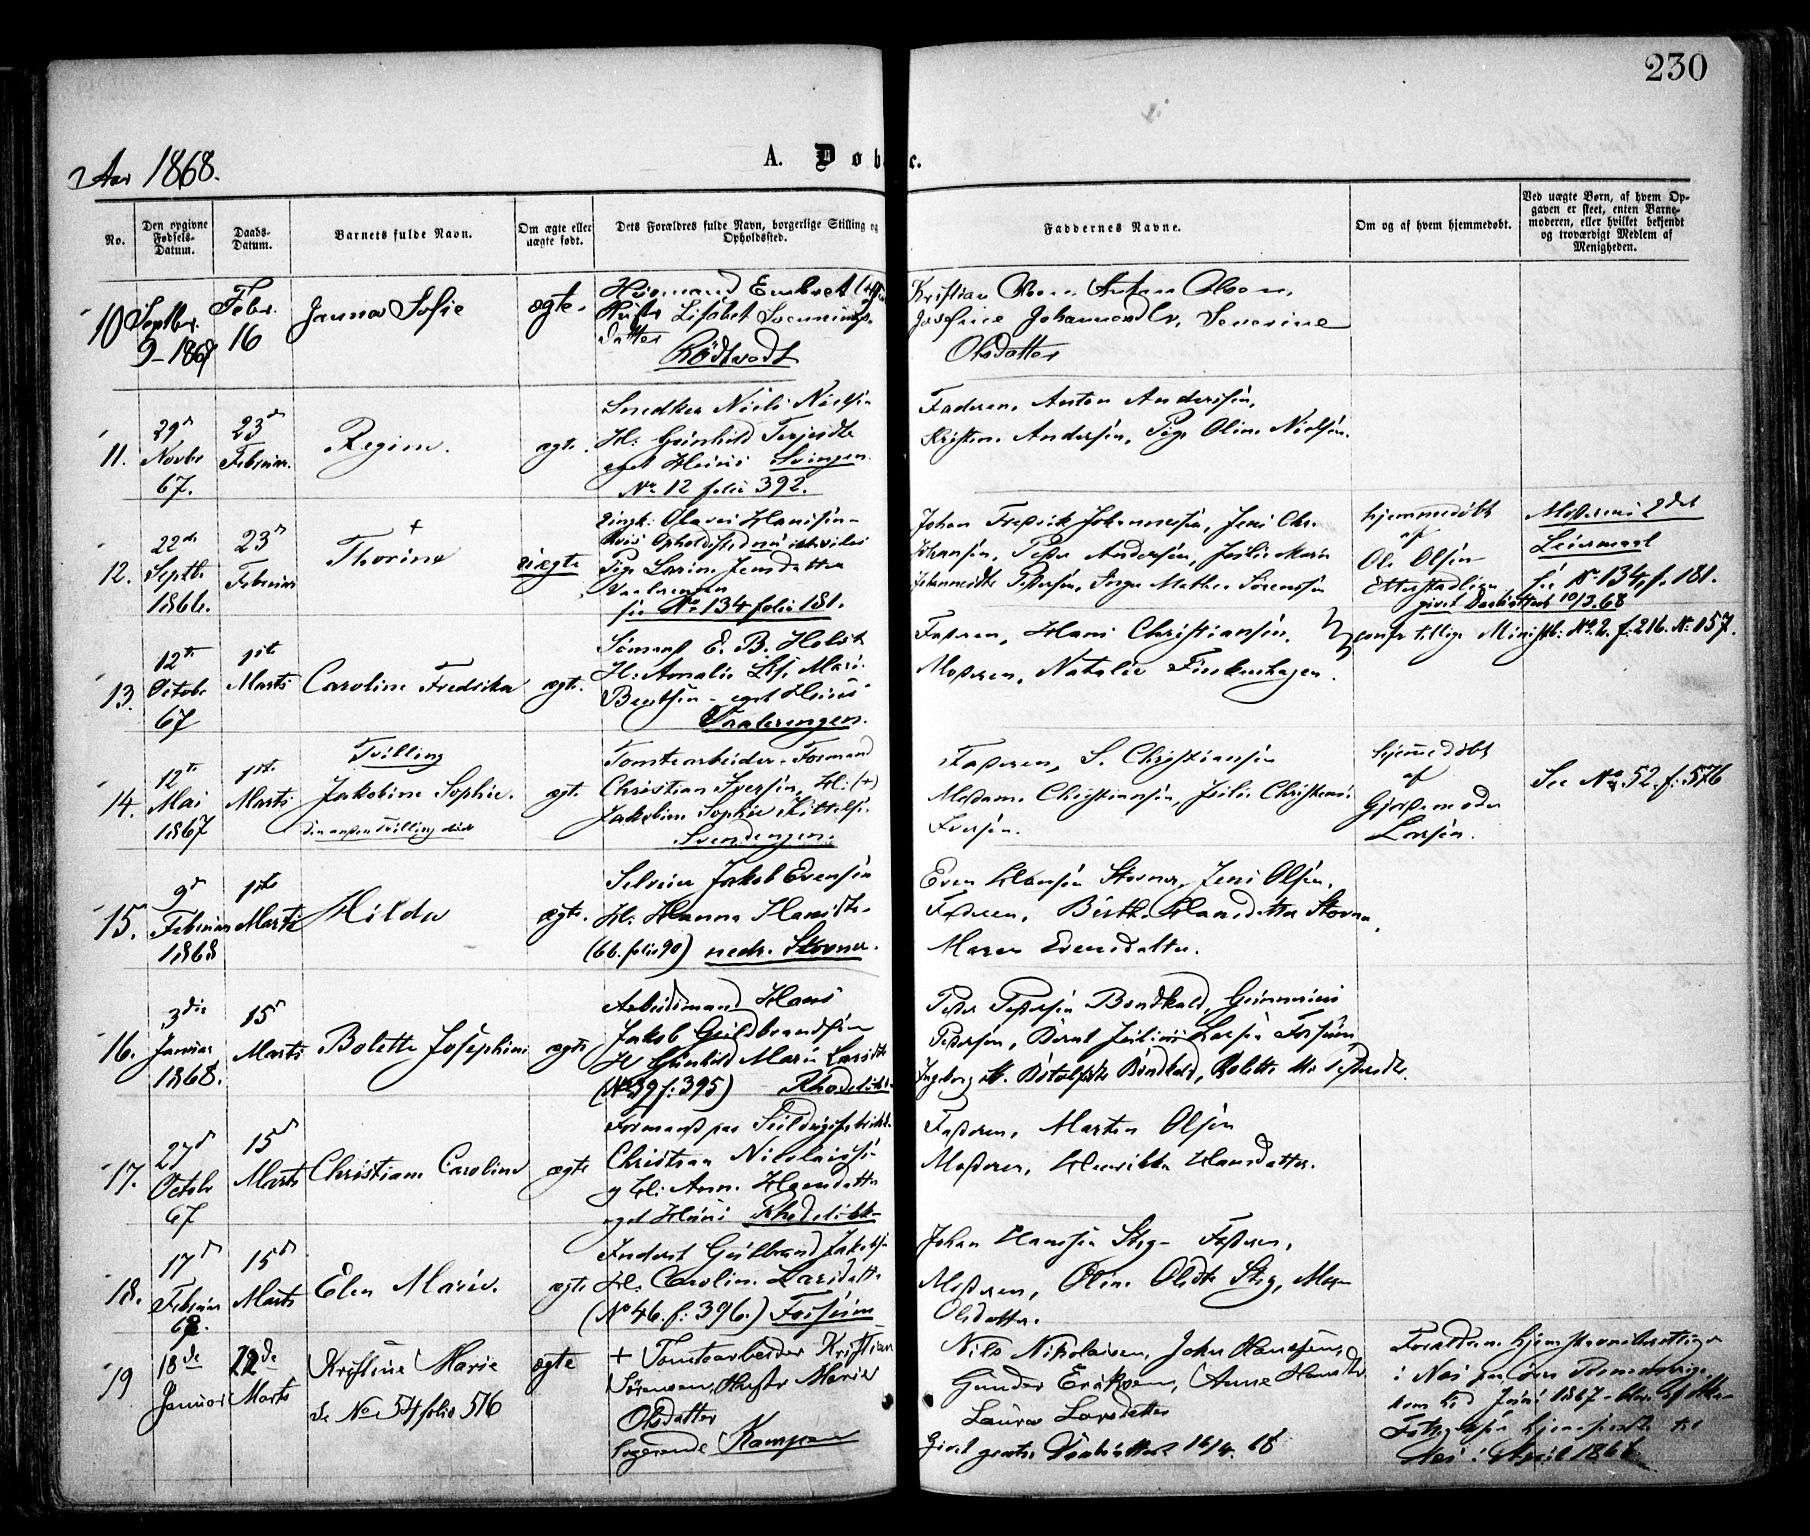 230
Aar 1868.
A. Døb
e.
No.
Den opgivne Fødsels-Datum.
Daabs-Datum.
Barnets fulde Navn.
Om ægte eller uægte født.
Dets Forældres fulde Navn, borgerlige Stilling og Opholdssted.
Faddernes Navne.
Om og af hvem hjemmedøbt.
Ved uægte Børn, af hvem Opgaven er skeet, enten Barnemoderen, eller hvilket bekjendt og troværdigt Medlem af Menigheden.
10
Septbr. 9-1867
Febr. 16
Janna Sofie
ægte.
Huusmand Embret
Hustr Lisabet Svennings-
datter
Rödtvedt
Kristian Olsen, Anton Olsen,
Josefine Johannesdtr, Severine
Olsdatter
11.
29d Novbr 67.
23d Februar.
Regine.
ægte.
Snedker Niels Nielsen
H: Gunhild Terjesdtr
eget Huus Svingen.
No 12 folio 392.
Faderen, Anton Andersen,
Kristine Andersen, Pige Oline Nielsen.
12.
22de Septbr 1866.
23d Februar
+
Thorine
uægte
Ungk: Olaves Hansen
Opholdssted
Pige Larine Jensdatter
Vaalerengen
see No 134 folio 181.
Johan Fredrik Johannessen, Jens Chr.
Johansen, Peder Andersen, Julie Marie
Pedersen, Inger Mathea Sørensen
hjemmedøbt
af
Ole Olsen
Etterstadlien
givet Daabsattest 10/3.68
Moderens 2det
Leiermaal
see No 134, f. 181.
13.
12te Octobr 67
1ste Marts
Caroline Fredrikke
ægte.
Sömand E. B. Holst
H: Amalie Marie
Bentsen - eget Huus
Vaalerengen.
Faderen, Hans Christiansen,
Moderen, Natalie Finckenhagen.
confr tillige Ministb: No 2. f. 216. No 157.
14.
12te Mai 1867
1ste Marts
Tvilling
Jakobine Sophie.
den anden Tvilling död
ægte.
Tomtearbeider-Formand
Christian Iversen, H: (+)
Jakobine Sophie Kittelsen
Svendengen.
Faderen, S. Christiansen
Madame Christiansen, Julie Christense
Iversen.
hjemmedøbt
af
Gjordemoder
Larsen.
See No 52. f. 576
15.
9d Februar 1868
1ste Marts
Hilda
ægte.
Selveier Jakob Evensen
H: Hanna Hansdtr.
(66. folio 90) nedr. Stovner.
Even Hansen Stovner, Jens Olsen,
Faderen, Birthe Hansdatter Stovner,
Maren Evensdatter.
16.
3die Januar 1868.
15d Marts
Bolette Josephine
ægte
Arbeidsmand Hans
Jakob Guldbrandsen
H Gunhild Marie Larsdtr
(No 39 f: 395) Rhodelökk
Peder Pedersen Bondkald, Gunnerius
Pedersen, Bernt Julius Larsen
Ingeborg M. Bondkald, Bolette
17.
27d Octobr 67
15d Marts
Christiane Caroline
ægte
Formand paa
Christian Nikolaisen
og H: Anne Hansdatter
eget Huus Rhodelökk
Faderen, Marten Olsen
Moderen, Henrikke Hansdatter.
18.
17d Februar 68.
15d Marts
Elen Marie.
ægte
Inderst Gulbrand Jakobsen
H: Caroline Larsdatter
(No 46. f: 396.)
Johan Hansen Steg- Faderen,
Moderen, Oline Olsdtr Steg, Maren
Olsdatter.
19
18de Januar
22de Marts
Kristine Marie
Se No 54 folio 576
ægte
+ Tomtearbeider Kristian
Sörensen, Hustr Marie
Olsdatter
logerende Kampen
Nils Nikolaisen, John Hansen,
Gunder Eriksen, Anne Hansdtr
Laura Larsdatter
Givet gratis Daabsattest 16/4. 68
Forældrene
i Nes
1867
April 1868